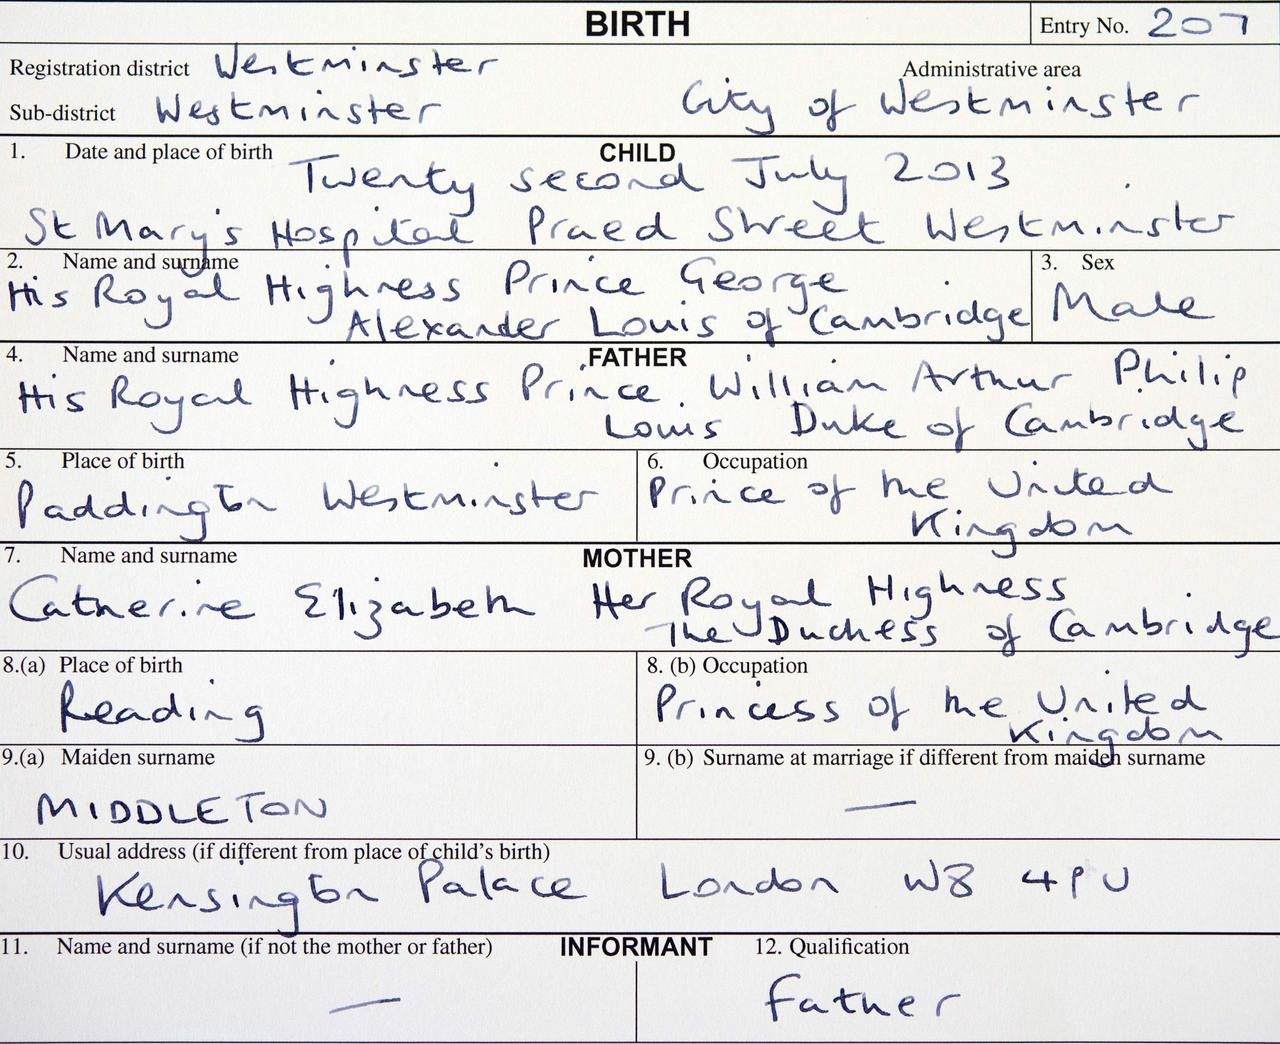 BIRTH
Entry No. 207
Registration district Westminster
Administrative area
Sub-district Westminster
City of Westminster
1. Date and place of birth
CHILD
Twenty second July 2013
St Mary's Hospital Praed Street Westminster
2. Name and surname
His Royal Highness Prince George
Alexander Louis of Cambridge
3. Sex
Male
4. Name and surname
FATHER
His Royal Highness Prince William Arthur Philip
Louis Duke of Cambridge
5. Place of birth
Paddington Westminster
6. Occupation
Prince of the United
Kingdom
7. Name and surname
MOTHER
Catherine Elizabeth Her Royal Highness
The Duchess of Cambridge
8.(a) Place of birth
Reading
8. (b) Occupation
Princess of the United
Kingdom
9.(a) Maiden surname
MIDDLETON
9. (b) Surname at marriage if different from maiden surname
—
10. Usual address (if different from place of child's birth)
Kensington Palace London W8 4PU
11. Name and surname (if not the mother or father)
INFORMANT
—
12. Qualification
Father